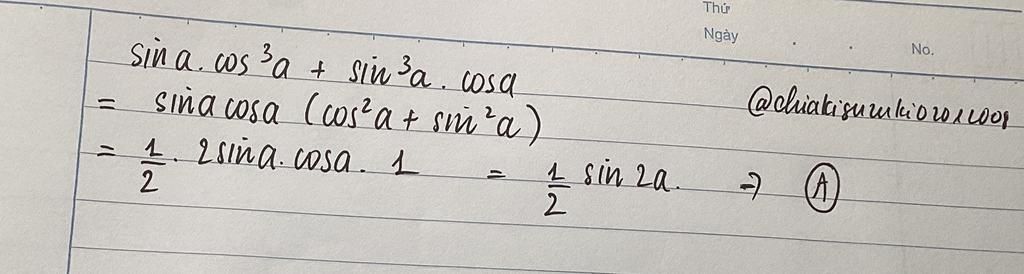 Thứ
Ngày . . No.
sin a . cos³a + sin³a . cosa
= sina cosa (cos²a + sin²a)
= 1/2 . 2sina . cosa . 1 = 1/2 sin 2a. => A